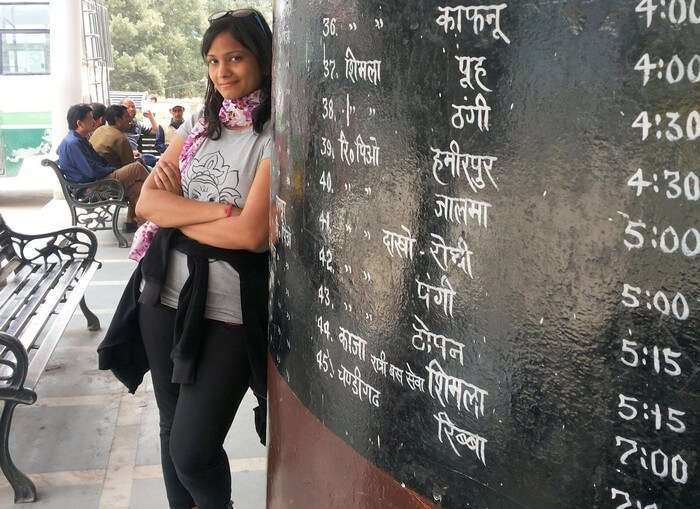 36. " काफनू 4:00
37. शिमला पूह 4:00
38. " ठंगी 4:30
39. रि॰पिओ हमीरपुर 4:30
40. " " जालमा 5:00
41. " " दाखो - रोह्री 5:00
42. " " पंगी 5:15
43. " " टोपन 5:15
44. काजा रात्री बस सेवा शिमला 7:00
45. चण्डीगढ रिब्बा